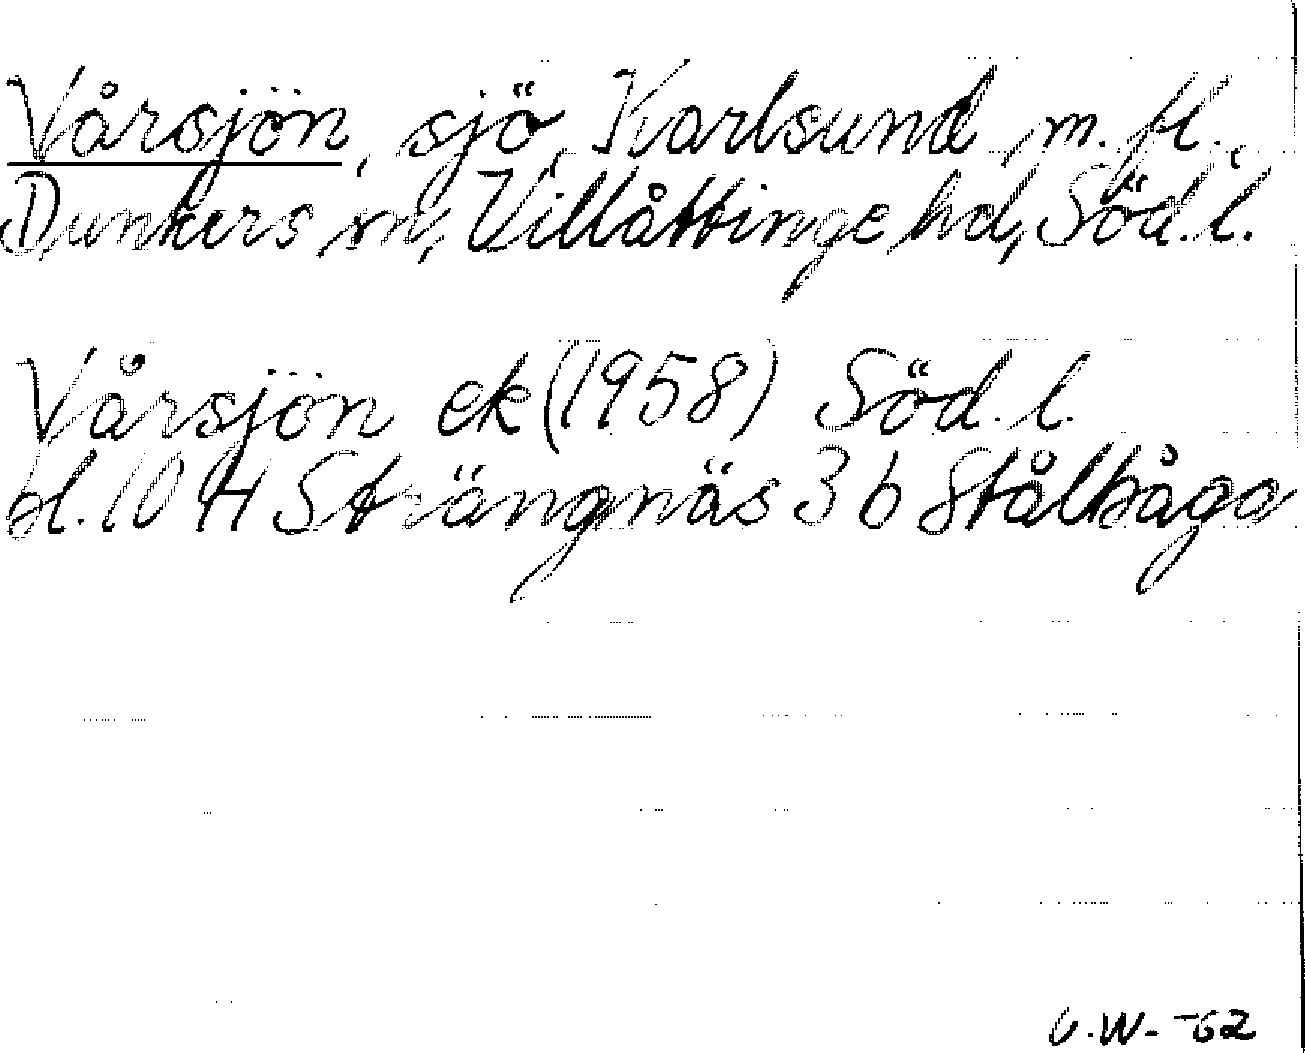 Vårsjön, sjö, Karlsund m.fl.,
Dunkers sn, Villåttinge hd, Söd.l.
Vårsjön ek (1958) Söd.l.
bl. 10 H Strängnäs 3 b Stålbåga
G.W. -62